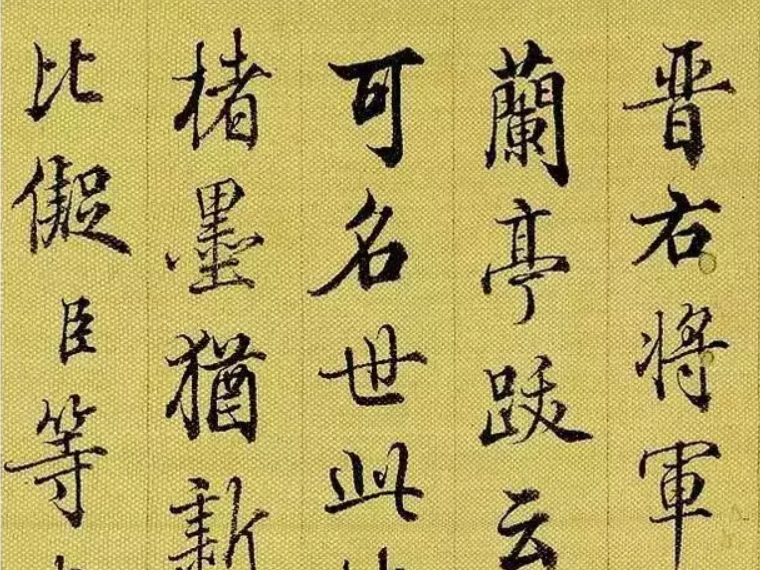 晋右将軍
蘭亭跋云
可名世此
楮墨猶新
比儗臣等